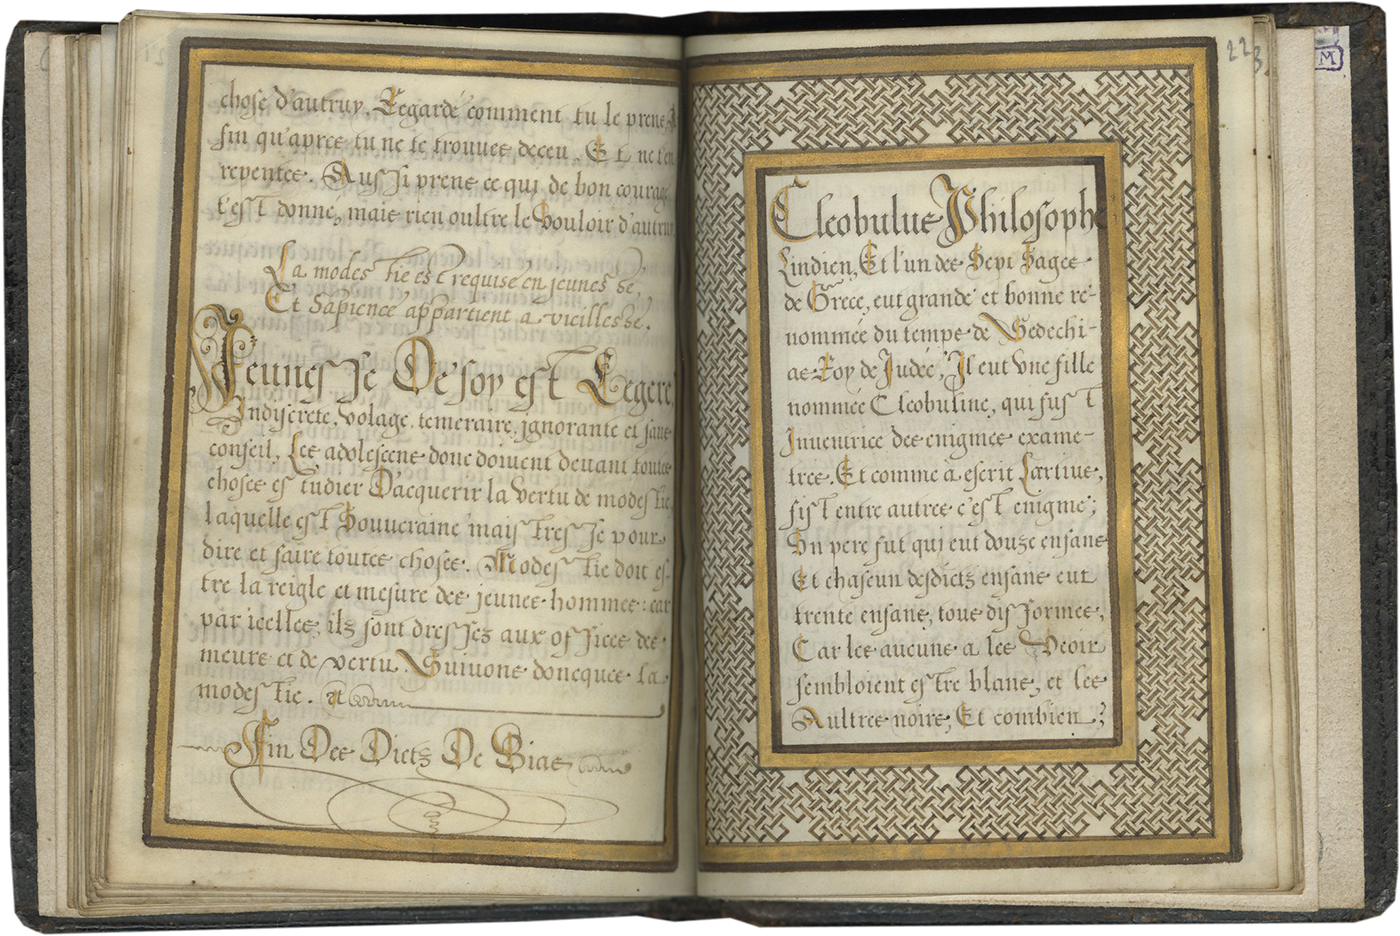 chose d'autruy. Regarde comment tu le prens A
fin qu'apres tu ne te trouues deceu. Et ne t'en
repentes. Aussi prens ce qui de bon courage
t'est donné, mais rien oultre le Vouloir d'autruy
La modestie est requise en jeunesse,
Et Sapience appartient a vieillesse.
Jeunesse De soy est Legere,
Indiscrete, Volage, temeraire, ignorante et sans
conseil. Les adolescens donc doiuent deuant toutes
choses estudier D'acquerir la Vertu de modestie,
laquelle est Souueraine maistresse pour
dire et faire toutes choses. Modestie doit es-
tre la reigle et mesure des jeunes hommes: car
par icelles, ilz sont dressez aux offices des
meurs et de vertu. Suiuons doncques la
modestie.
Fin Des Dictz De Bias
223
M
Cleobulus Philosophe
Lindien, Et l'un des Sept Sages
de Grece, eut grande et bonne re-
nommée du temps de Sedechi-
as Roy de Judée, Il eut Vne fille
nommée Cleobuline, qui fust
Inuentrice des enigmes exame-
tres. Et comme a escrit Lartius,
fist entre autres c'est enigme;
Vn pere fut qui eut douze enfans
Et chascun desdictz enfans eut
trente enfans, tous difformes,
Car les aucuns a les Veoir
sembloient estre blans, et les
Aultres noirs, Et combien